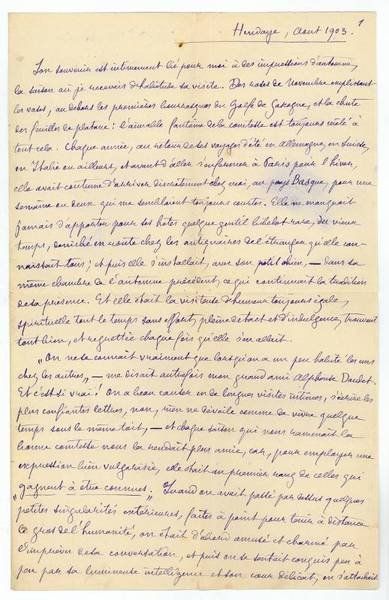 Hendaye, Août 1903.
1
Son souvenir est intimement lié pour moi à des impressions d'automne,
la saison où je recevais d'habitude sa visite. Des roses de Novembre emplissant
les vases, au dehors les premières bourrasques du Golfe de Gascogne, et la chute
des feuilles de platane : l'aimable fantôme de la comtesse est toujours mêlé à
tout cela. Chaque année, au retour de ses voyages d'été en Allemagne, en Suisse,
en Italie ou ailleurs, et avant d'aller s'enfermer à Paris pour l'hiver,
elle avait coutume d'arriver discrètement chez moi, au pays Basque, pour une
semaine ou deux qui me semblaient toujours courtes. Elle ne manquait
jamais d'apporter pour ses hôtes quelque gentil bibelot rare, du vieux
temps, déniché en route chez les antiquaires de l'étranger qu'elle con-
naissait tous ; et puis elle s'installait, avec son petit chien, — dans sa
même chambre de l'automne précédent, ce qui continuait la tradition
de sa présence. Et elle était la visiteuse d'humeur toujours égale,
spirituelle tout le temps sans effort, pleine de tact et d'indulgence, trouvant
tout bien, et regrettée chaque fois qu'elle s'en allait.
„On ne se connaît vraiment que lorsqu'on a un peu habité les uns
chez les autres„, — me disait autrefois mon grand ami Alphonse Daudet.
Et c'est si vrai ! On a beau causer en de longues visites intimes, s'écrire les
plus confiantes lettres, non, rien ne dévoile comme de vivre quelque
temps sous le même toit, — et chaque saison qui nous ramenait la
bonne comtesse nous la rendait plus amie, car, pour employer une
expression bien vulgarisée, elle était au premier rang de celles qui
„gagnent à être connues„. Quand on avait passé par dessus quelques
petites singularités extérieures, faites à point pour tenir à distance
le gros de l'humanité, on était d'abord amusé et charmé par
l'imprévu de sa conversation, et puis on se sentait conquis peu à
peu par sa lumineuse intelligence et son cœur délicat, on s'attachait